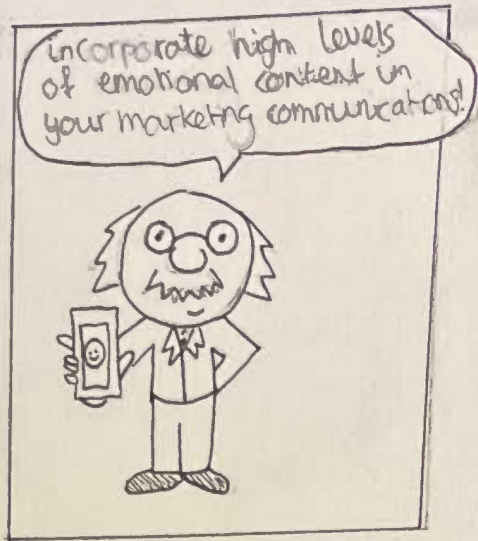 incorporate high levels
of emotional content in
your marketing communications!